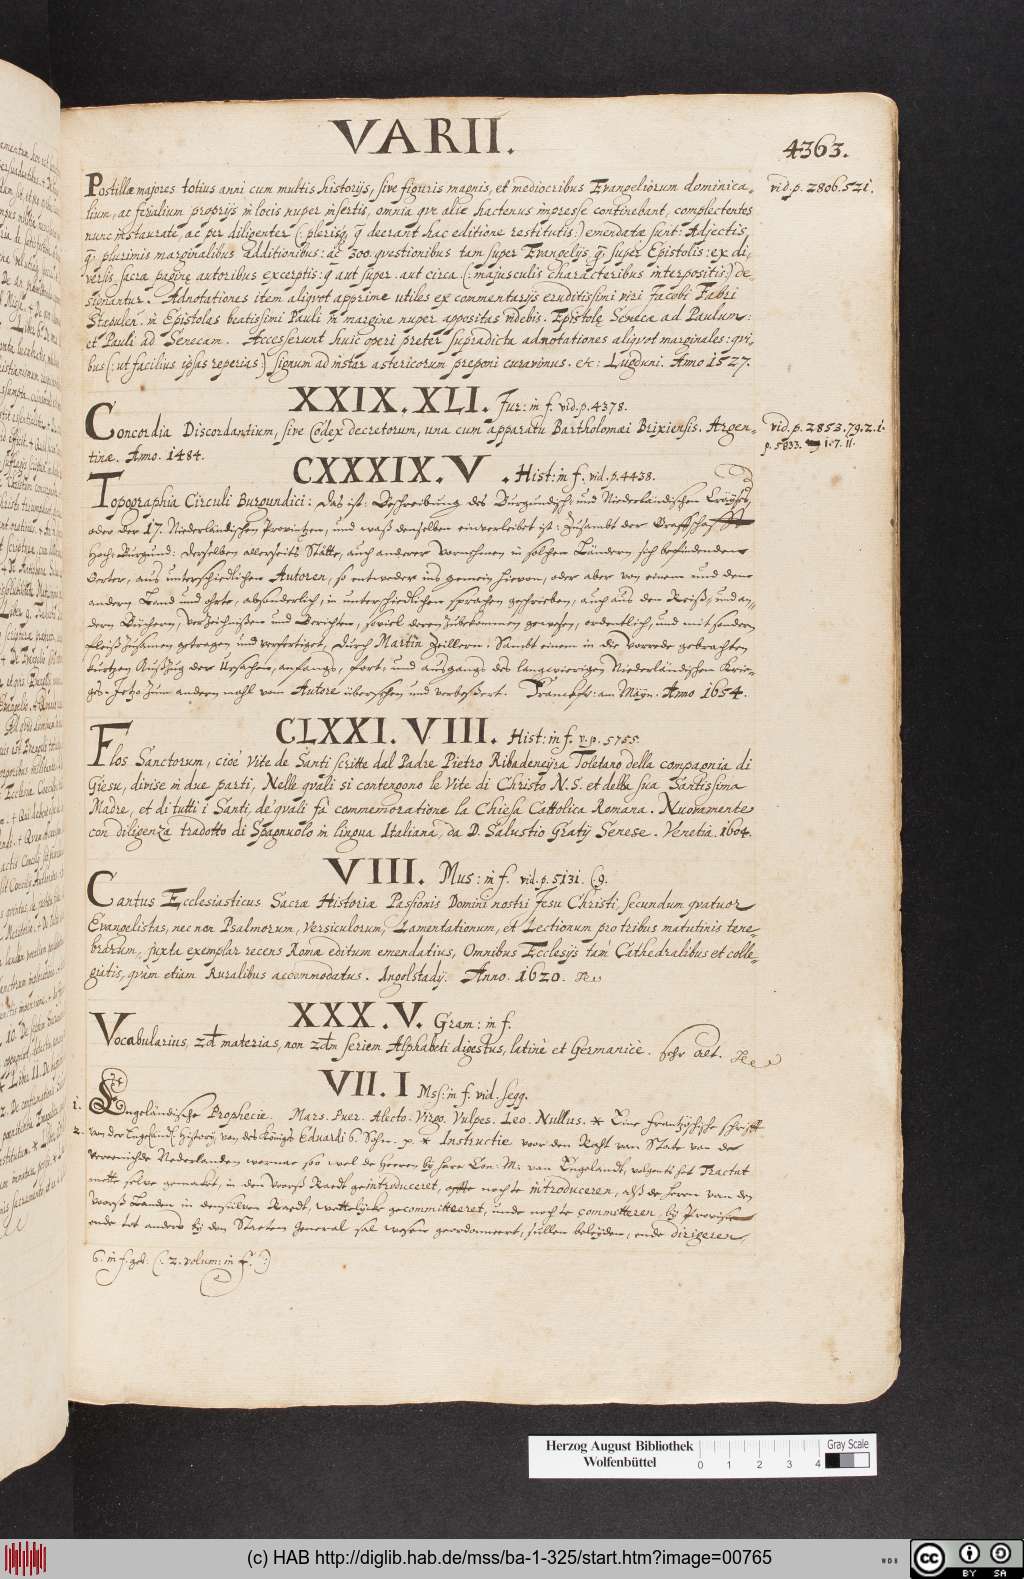 VARII.
4363.
Postillæ majores totius anni cum multis historijs, sive figuris magnis, et mediocribus Evangeliorum dominica-
vid. p. 2806. 521.
lium, ac ferialium proprijs in locis nuper insertis, omnia qvæ aliæ hactenus impressæ continebant, complectentes
nunc instauratæ, ac per diligenter (: plerisq; q̃ deerant hac editione restitutis:) emendatæ sunt: Adjectis,
q̃ plurimis marginalibus additionibus: ac 300 qvestionibus tam super Evangelijs q̃ super Epistolis: ex di,
versis sacræ paginę autoribus excerptis: q aut super, aut circa (: majusculis characteribus interpositis:) de-
signantur. Adnotationes item aliqvot apprime utiles ex commentarijs eruditissimi viri Jacobi Fabri
Stapulen. in Epistolas beatissimi Pauli in margine nuper appositas videbis. Epistolę Senecæ ad Paulum:
et Pauli ad Senecam. Accesserunt huic operi preter supradicta adnotationes aliqvot marginales: qvi,
bus (: ut facilius ipsas reperias:) signum ad instar astericorum preponi curavimus. etc: Lugduni. Anno 1527.
XXIX. XLI. Jur: in f. vid. p. 4378.
Concordia Discordantium, sive Codex decretorum, una cum apparatu Bartholomæi Brixiensis. Argen-
vid. p. 2853. 79. 2. 1.
tinæ. Anno. 1484.
p. 5833. 1. 7. 11.
CXXXIX. V. Hist: in f. vid. p. 4438.
Topographia Circuli Burgundici: Das ist: Beschreibung des Burgundisch- und Niederländischen Craÿses,
oder der 17. Niederländischen Provintzen, und waß denselben einverleibet ist: Zusambt der Graffschafft
Hoch-Burgund: Derselben allerseits Stätte, auch anderer Vornehmen in solchen Ländern sich befindenden
Oerter, aus unterschiedlichen Autoren, so entweder ins gemein hievon, oder aber von einem und dem
andern Land und ohrte, absonderlich, in unterschiedlichen sprachen geschrieben, auch aus den Reiß- und an-
dern Büchern, verzeichnißen und Berichten, soviel deren zubekommen gewesen, ordentlich, und mit sondern
fleiß zusamen getragen und verfertiget, Durch Martin Zeillern. Sambt einem in die Vorrede gebrachten
kurtzen Außzug der Ursachen, anfangs, fort- und ausgangs des langwierigen Niederländischen Krie-
ges. Jetzo zum andern mahl vom Autore übersehen und verbeßert. Franckf: am Mayn. Anno 1654.
CLXXI. VIII. Hist: in f. v. p. 5755.
Flos Sanctorum, cioè Vite de Santi scritte dal Padre Pietro Ribadeneyra Toletano della compagnia di
Giesu, divise in due parti, Nelle qvali si contengono le Vite di Christo N. S. et della sua Santissima
Madre, et di tutti i Santi, de' qvali fà commemoratione la Chiesa Cattolica Romana. Nuovamente
con diligenza tradotto di Spagnuolo in lingua Italiana, da D. Salustio Gratij Senese. Venetia. 1604.
VIII. Mus: in f. vid. p. 5131.
Cantus Ecclesiasticus Sacræ Historiæ Passionis Domini nostri Jesu Christi, secundum qvatuor
Evangelistas, nec non Psalmorum, Versiculorum, Lamentationum, et Lectionum pro tribus matutinis tene-
brarum, juxta exemplar recens Romæ editum emendatius, Omnibus Ecclesijs tam Cathedralibus et colle-
giatis, qvam etiam Ruralibus accommodatus. Ingolstadij. Anno. 1620.
XXX. V. Gram: in f.
Vocabularius, 2dũ materias, non 2dm seriem Alphabeti digestus, latinè et Germanicè. sehr alt.
VII. I Mss: in f. vid. segg.
1. Engeländische Prophecie. Mars. Puer. Alecto. Virgo. Vulpes. Leo. Nullus. * Eine Frantzösische schrifft
2. von der Engelend. History, von des Königs Eduardi 6. Sohn. p. * Instructie voor den Raht van State van de
vereenichde Nederlanden, wernae soo wel de Heeren by hare Con: M: van Engelandt, volgents het Tractat
mette selve gemaket, in den vorß Raedt geintroduceret, offte noch te introduceren, als de heren van den
vorß Landen in denselven Raedt, wettelijcke gecommitteret, unde noch te committeren, by Provisie
ende tot anders by den Staeten General sal wesen geordonneert, sullen beleyden, ende dirigeren,
6. in f. geb. (: 2. volum: in f. :)
Herzog August Bibliothek
Wolfenbüttel
0 1 2 3 4
Gray Scale
(c) HAB http://diglib.hab.de/mss/ba-1-325/start.htm?image=00765
WDB
cc BY SA